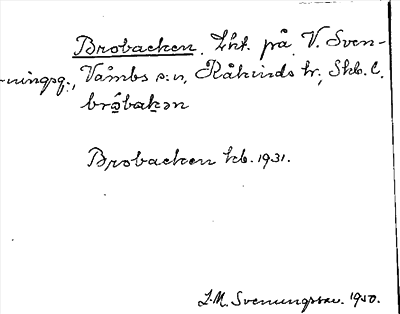 Brobacken. Lht. på V. Sven-
-ningsg:, Våmbs s:n, Kåkinds hr, Skb. l.
bro̤bakən
Brobacken kb. 1931.
J.M. Svenningsson. 1950.